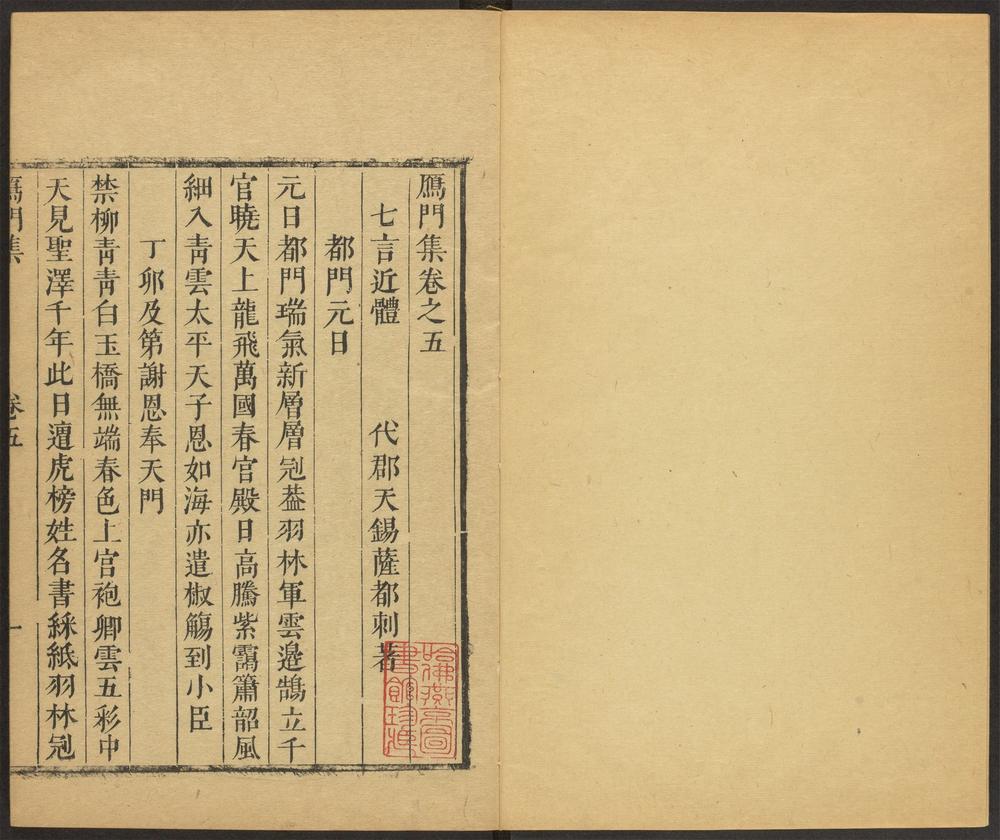 鴈門集卷之五
七言近體　代郡天錫薩都刺著
都門元日
元日都門瑞氣新層層冠葢羽林軍雲邉鵠立千
官曉天上龍飛萬國春官殿日高騰紫靄簫韶風
細入靑雲太平天子恩如海亦遣椒觴到小臣
丁卯及第謝恩奉天門
禁柳靑靑白玉橋無端春色上官袍卿雲五彩中
天見聖澤千年此日遭虎榜姓名書綵紙羽林冠
鴈門集　卷五　一
哈佛燕京圖書館珍藏